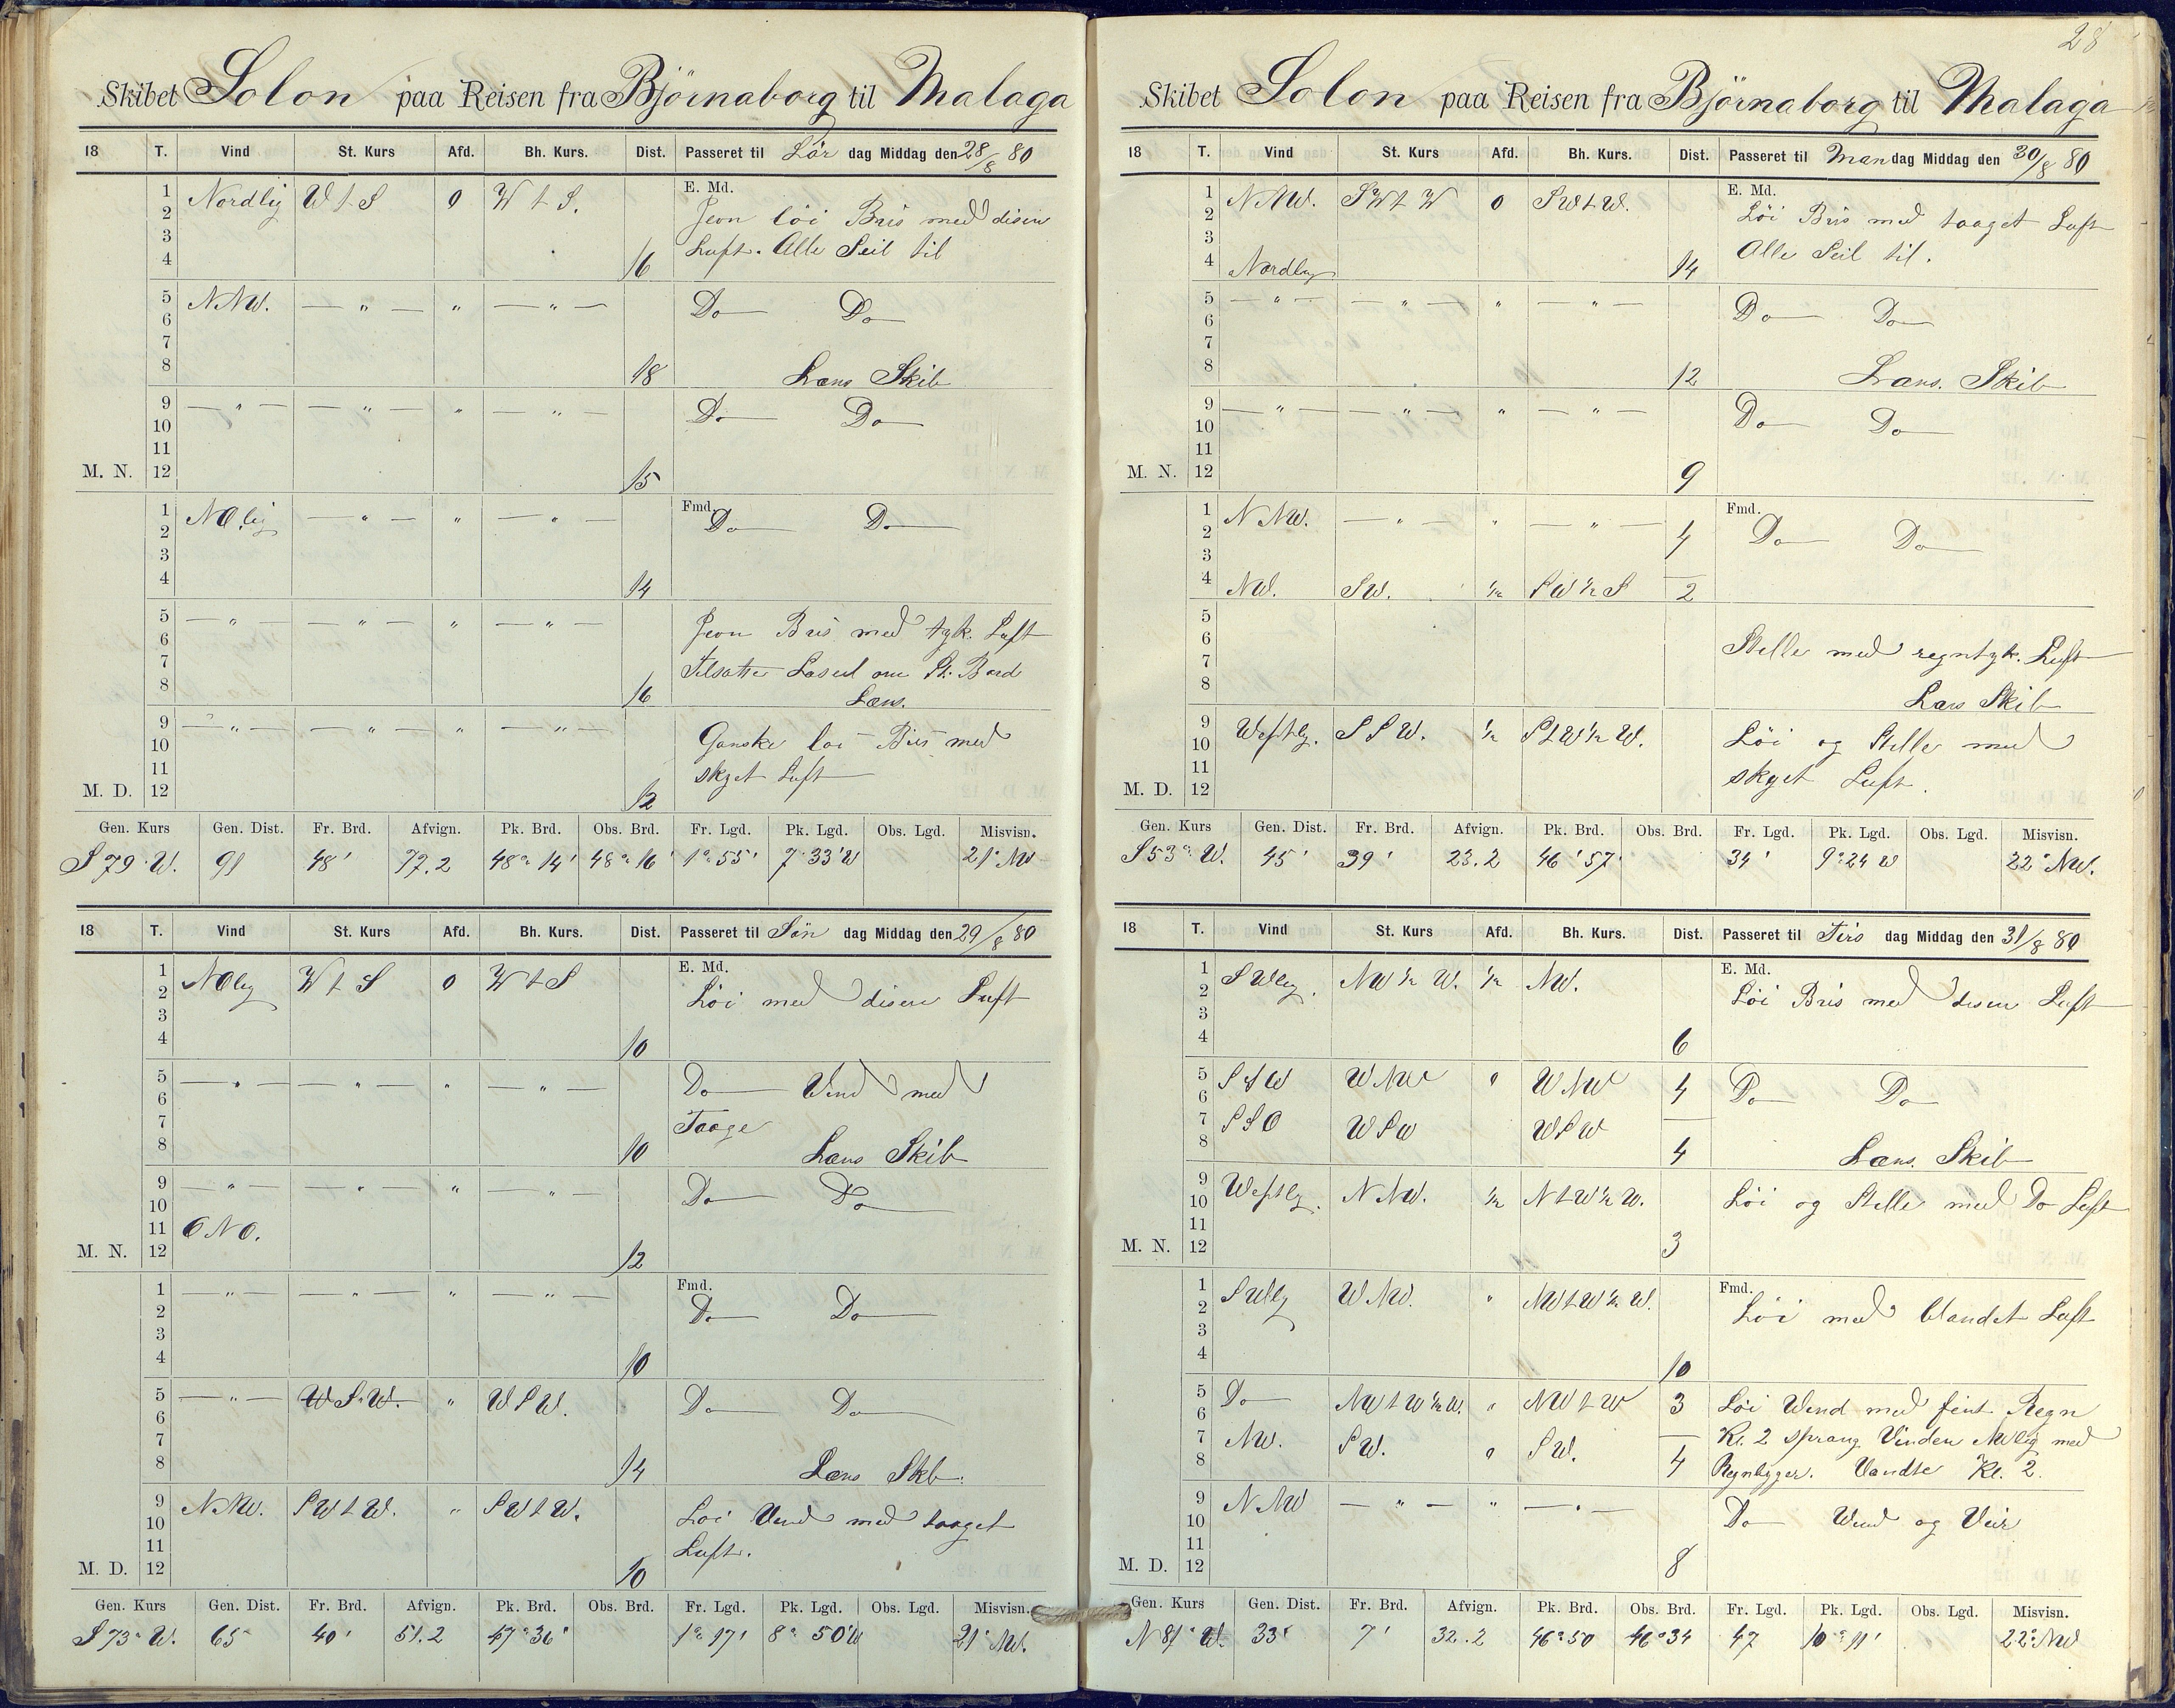 Skibet Solon paa Reisen fra Björnaborg til Malaga
18 T. Vind St. Kurs Afd. Bh. Kurs. Dist. Passeret til Lör dag Middag den 28/8 80
1 Nordlig W t S 0 W t S. E. Md.
2 Jevn löi Bris med disin
3 Luft. Alle Seil til
4 16
5 NNW. — " — " — " — Do Do
6
7
8 18 Læns Skib
9 — " — — " — " — " — Do Do
10
11
M. N. 12 15
1 NO.lig — " — " — " — Fmd. Do Do
2
3
4 14
5 — " — — " — " — " — Jevn Bris med tyk. Luft
6
7 Tilsatte Læseil om St. Bord
8 16 Læns.
9 — " — — " — " — " — Ganske löi Bris med
10
11 skyet Luft
M. D. 12 12
Gen. Kurs Gen. Dist. Fr. Brd. Afvign. Pk. Brd. Obs. Brd. Fr. Lgd. Pk. Lgd. Obs. Lgd. Misvisn.
S 79° W. 91 48' 77.2 48° 14' 48° 16' 1° 55' 7° 33' W 21° NW
18 T. Vind St. Kurs Afd. Bh. Kurs. Dist. Passeret til Sön dag Middag den 29/8 80
1 NOlig W t S 0 W t S E. Md.
2 Löi med disin Luft
3
4 10
5 — " — — " — " — " — Do Vind med
6
7 Taage
8 10 Læns Skib
9 — " — — " — " — " — Do Do
10
11 ONO.
M. N. 12 12
1 — " — — " — " — " — Fmd.
2 Do Do
3
4 10
5 — " — WSW. " WSW. Do Do
6
7
8 14 Læns Skib.
9 NNW. SW t W. " SW t W. Löi Vind med taaget
10
11 Luft.
M. D. 12 10
Gen. Kurs Gen. Dist. Fr. Brd. Afvign. Pk. Brd. Obs. Brd. Fr. Lgd. Pk. Lgd. Obs. Lgd. Misvisn.
S 73° W. 65 40' 51.2 47° 36' 1° 17' 8° 50' W 21° NW.
28
Skibet Solon paa Reisen fra Björnaborg til Malaga
18 T. Vind St. Kurs Afd. Bh. Kurs. Dist. Passeret til Man dag Middag den 30/8 80
1 NNW. SW t W 0 SW t W. E. Md.
2 Löi Bris med taaget Luft
3 Alle Seil til.
4 Nordlig 14
5 — " — — " — " — " — Do Do
6
7
8 12 Læns. Skib
9 — " — — " — " — " — Do Do
10
11
M. N. 12 9
1 NNW. — " — " — " — 4 Fmd.
2 Do Do
3
4 NW. SW. ½ SW ½ S 2
5
6 Stille med regntyk. Luft
7
8 Læns Skib
9 Westlig. SSW. ½ S t W ½ W. Löi og Stille med
10
11 skyet Luft.
M. D. 12
Gen. Kurs Gen. Dist. Fr. Brd. Afvign. Pk. Brd. Obs. Brd. Fr. Lgd. Pk. Lgd. Obs. Lgd. Misvisn.
S 53° W. 45' 39' 23.2 46° 57' 34' 9° 24 W 22° NW.
18 T. Vind St. Kurs Afd. Bh. Kurs. Dist. Passeret til Tirs dag Middag den 31/8 80
1 SWlig. NW ½ W. ½ NW. E. Md.
2 Löi Bris med disin Luft
3
4 6
5 S t W WNW 0 WNW 4 Do Do
6
7 SSO WSW WSW
8 4 Læns. Skib
9 Westlig. NNW. ½ N t W ½ W. Löi og Stille med Do Luft
10
11
M. N. 12 3
1 SWlig WNW. " NW t W ½ W. Fmd.
2 Löi med blandet Luft
3
4 10
5 Do NW t W ½ W. " NW t W 3 Löi Wind med fint Regn
6
7 NW. SW. 0 SW. Kl. 2 sprang Vinden NWlig med
8 4 Regnbyger. Vandte Kl. 2.
9 NNW — " — " — " — Do Wind og Veir
10
11
M. D. 12 8
Gen. Kurs Gen. Dist. Fr. Brd. Afvign. Pk. Brd. Obs. Brd. Fr. Lgd. Pk. Lgd. Obs. Lgd. Misvisn.
N 81° W. 33' 7' 32.2 46° 50 46° 34 47 10° 11' 22° NW